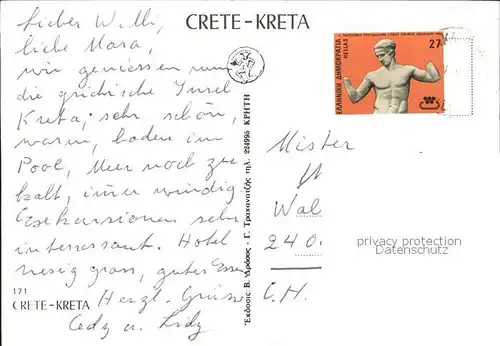 CRETE-KRETA
Lieber Willi,
liebe Mara,
wir geniessen nun
die grichische Insel
Kreta, sehr schön,
warm, baden im
Pool, Meer noch zu
kalt, immer windig.
Exkursionen sehr
interressant. Hotel
riesig gross, gutes Essen
Herzl. Grüsse
a. Lidz
171
CRETE-KRETA
Έκδοσις Β. Δρόσος - Γ. Τραχανατζής τηλ. 224995 ΚΡΗΤΗ
ΕΛΛΗΝΙΚΗ ΔΗΜΟΚΡΑΤΙΑ
HELLAS
27
Mister
W
Wal
240
C.H.
privacy protection
Datenschutz